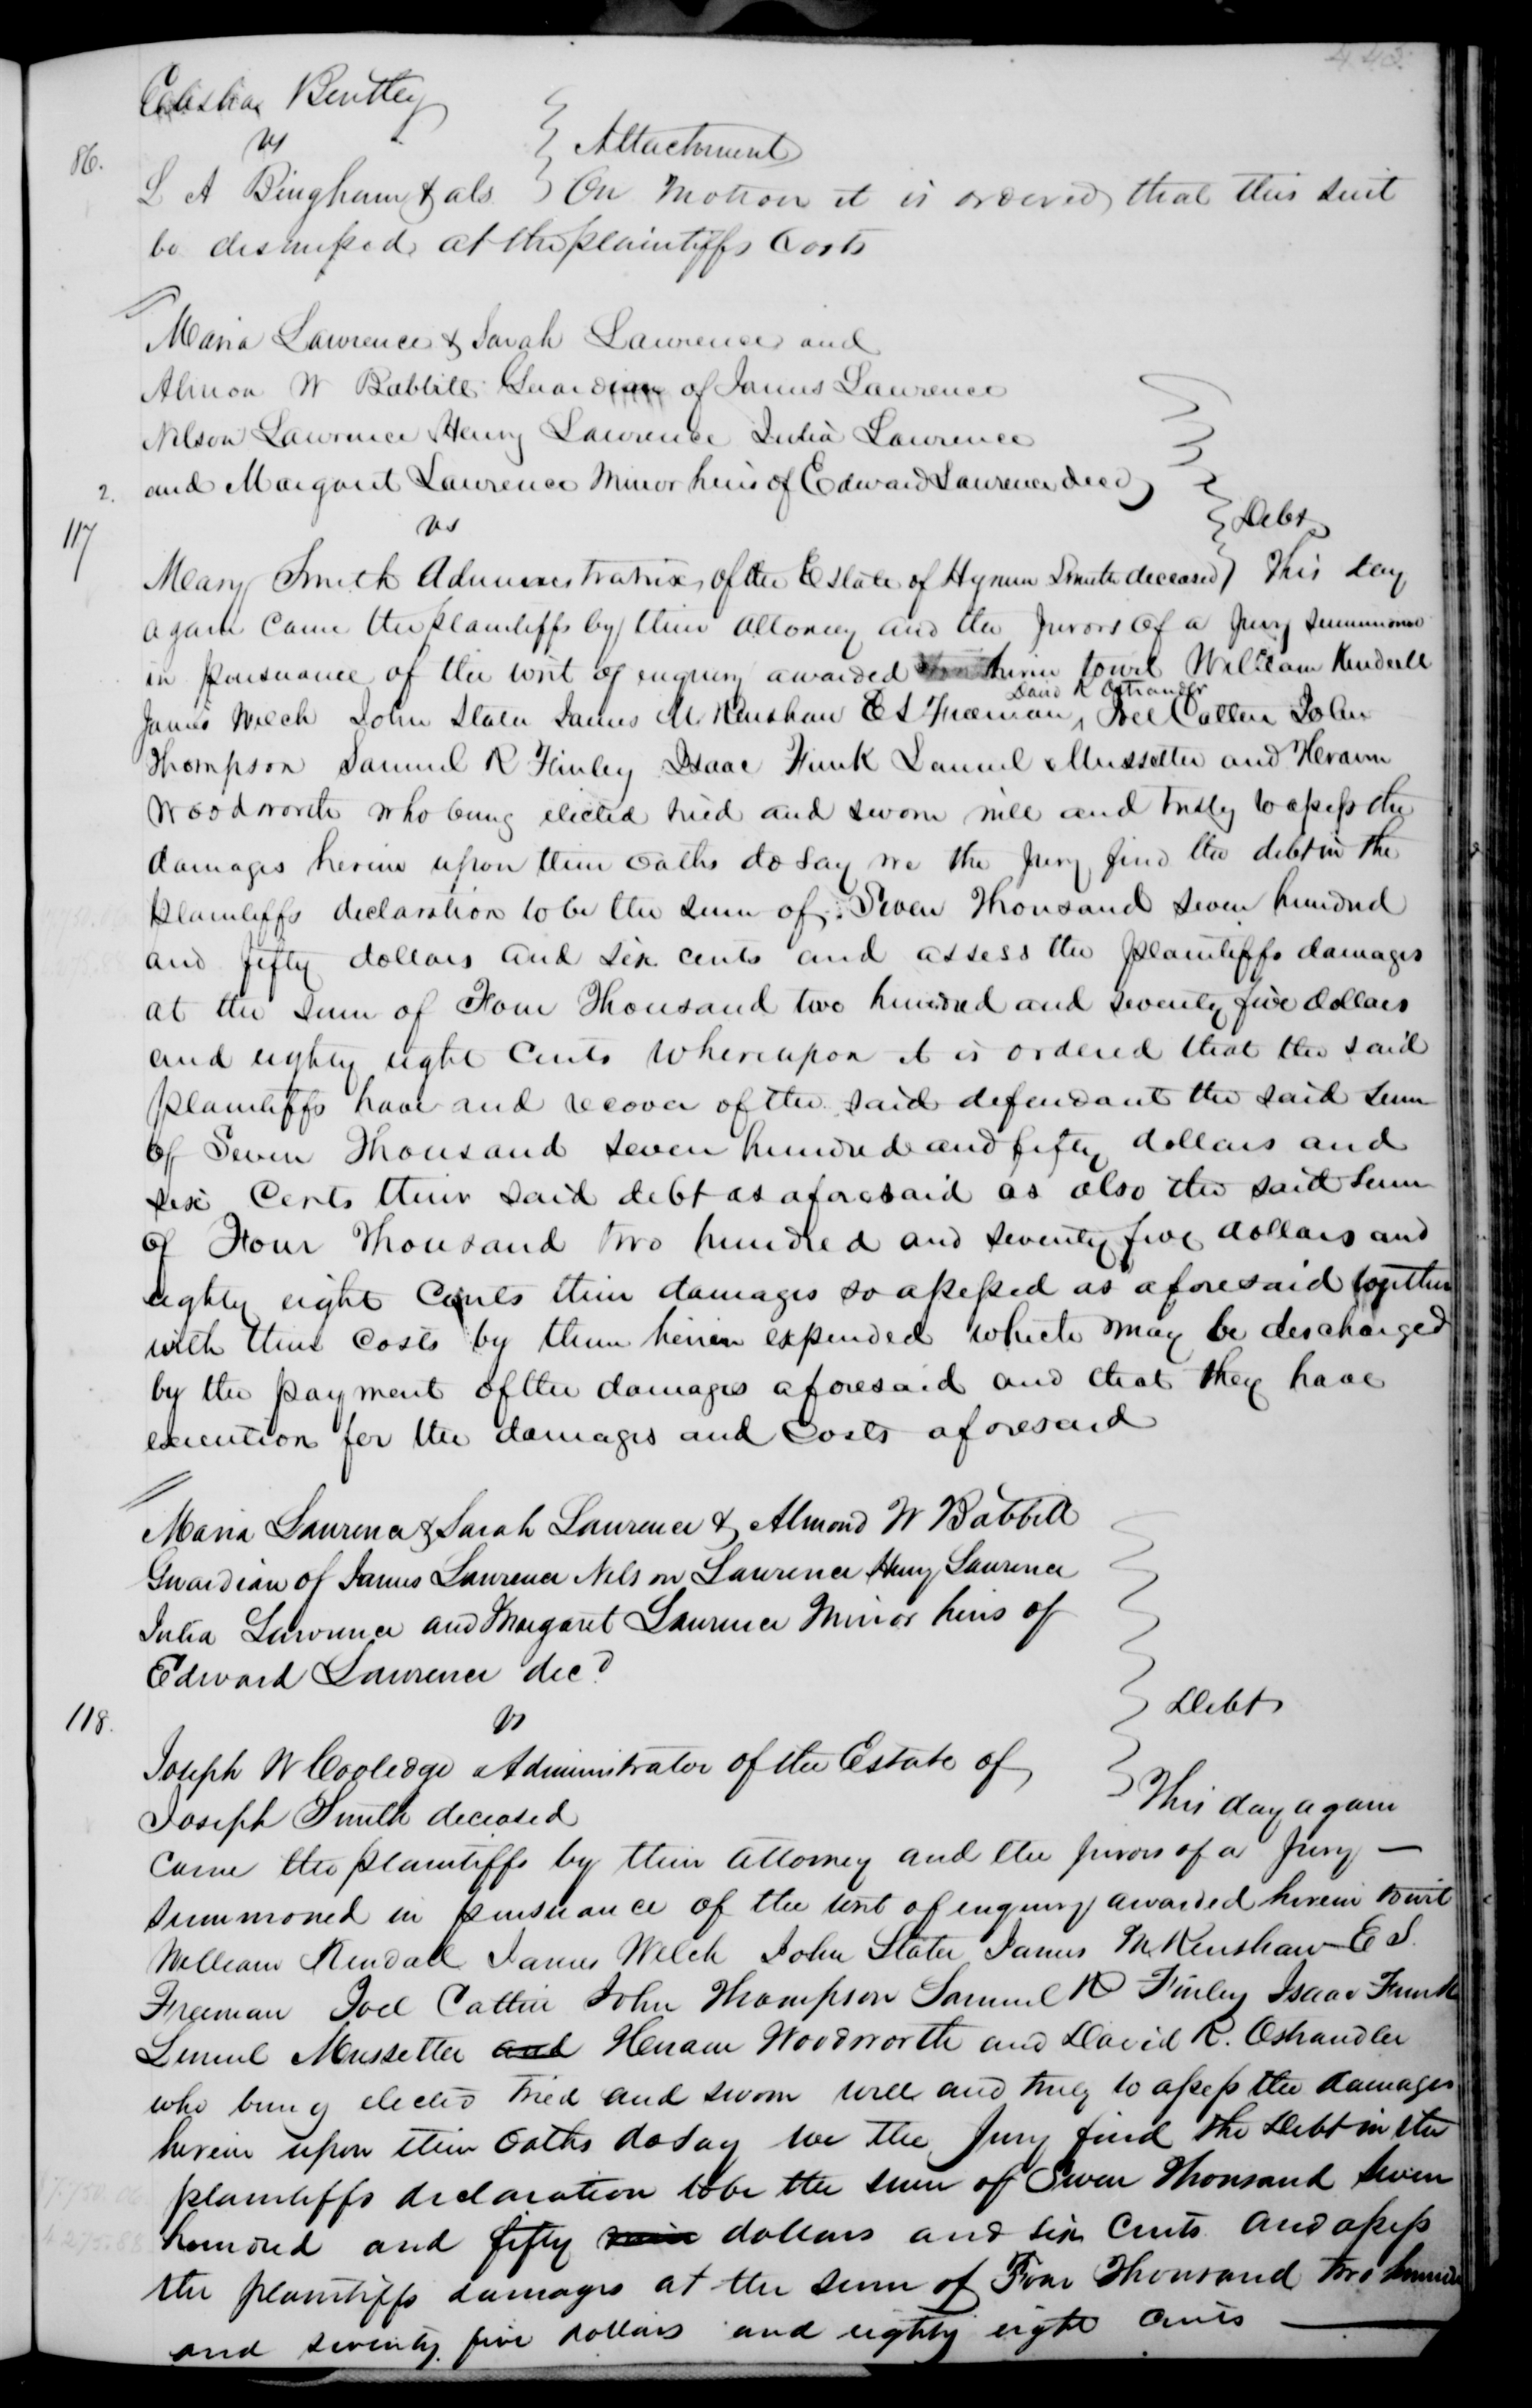 443.
Celestia Bentley
vs
Attachment
86.
L A Bingham & als } On motion it is ordered that this suit
be dismissed at the plaintiffs Costs
Maria Lawrence & Sarah Lawrence and
Almon W Babbitt Guardian of James Lawrence
Nelson Lawrence Henry Lawrence Julia Lawrence
2. and Margaret Lawrence Minor heirs of Edward Lawrence decd
117 vs } Debt
Mary Smith Administratrix of the Estate of Hyrum Smith deceased } This day
again came the plaintiffs by their attorney and the jurors of a jury summoned
in pursuance of the writ of enquiry awarded herein towit William Kendall
David R Ostrander
James Welch John Slater James M Renshaw E S Freeman ^ Joel Catlin John
Thompson Samuel R Finley Isaac Funk Lemuel Mussetter and Heram
Woodworth who being elected tried and sworn well and truly to assess the
damages herein upon their oaths do say we the jury find the debt in the
plaintiffs declaration to be the sum of Seven Thousand seven hundred
and fifty dollars and six cents and assess the plaintiffs damages
at the sum of Four Thousand two hundred and seventy five dollars
and eighty eight Cents Whereupon it is ordered that the said
plaintiffs have and recover of the said defendant the said sum
of Seven Thousand seven hundred and fifty dollars and
six Cents their said debt as aforesaid as also the said sum
of Four Thousand two hundred and seventy five dollars and
eighty eight Cents their damages so assessed as aforesaid together
with their costs by them herein expended which may be discharged
by the payment of the damages aforesaid and that they have
execution for the damages and Costs aforesaid
Maria Lawrence & Sarah Lawrence & Almond W Babbitt
Guardian of James Lawrence Nelson Lawrence Henry Lawrence
Julia Lawrence and Margaret Lawrence Minor heirs of
Edward Lawrence decd
118. vs } Debt
Joseph W Cooledge Administrator of the Estate of
Joseph Smith deceased } This day again
came the plaintiffs by their attorney and the jurors of a jury —
summoned in pursuance of the writ of enquiry awarded herein towit
William Kendall James Welch John Slater James M Renshaw E S.
Freeman Joel Catlin John Thompson Samuel R Finley Isaac Funk
Lemuel Mussetter and Heram Woodworth and David R. Oshandler
who being elected tried and sworn well and truly to assess the damages
herein upon their oaths do say we the Jury find the Debt in the
plaintiffs declaration to be the sum of Seven Thousand Seven
hundred and fifty dollars and six Cents and assess
4275.88
the plaintiffs damages at the sum of Four Thousand two hundred
and seventy five dollars and eighty eight cents —